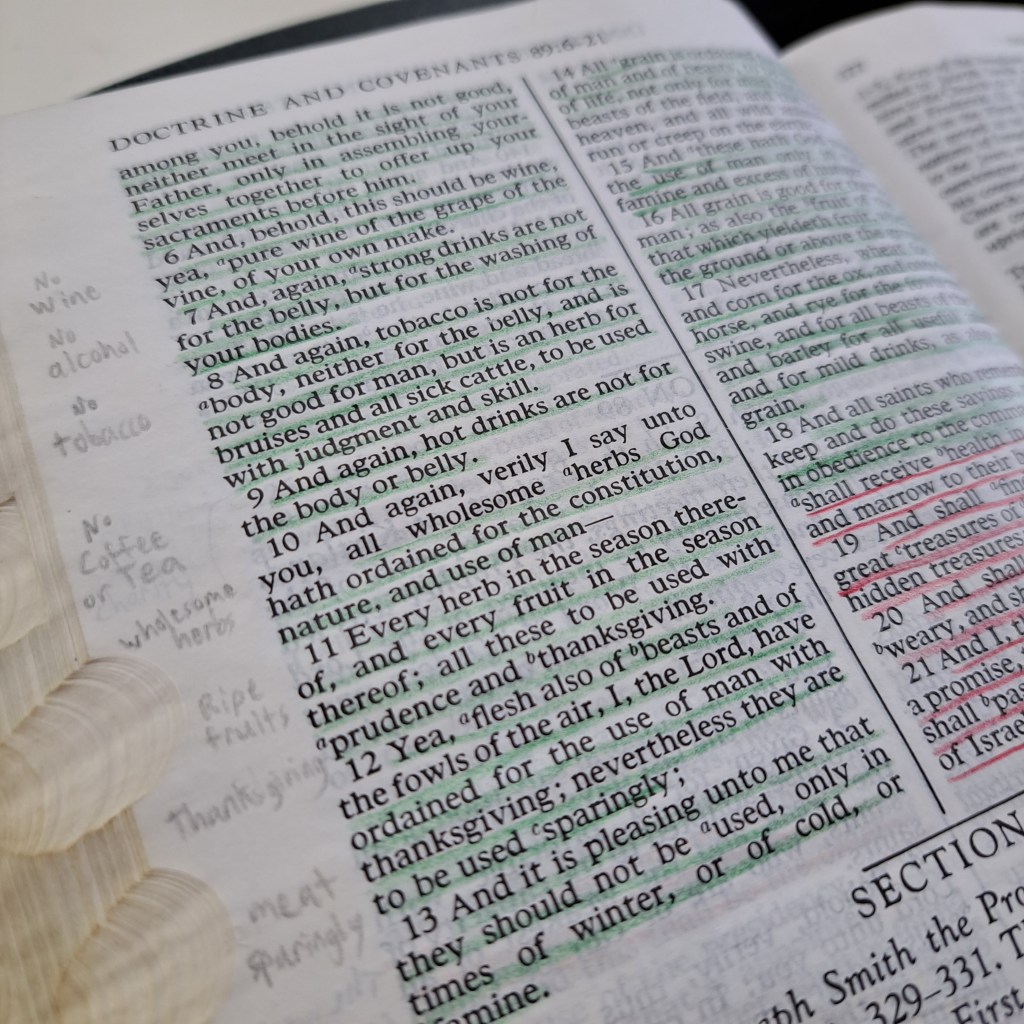 DOCTRINE AND COVENANTS 89:6-21
among you, behold it is not good,
neither meet in the sight of your
Father, only in assembling your-
selves together to offer up your
sacraments before him.
6 And, behold, this should be wine,
yea, ᵃpure wine of the grape of the
vine, of your own make.
7 And, again, ᵃstrong drinks are not
for the belly, but for the washing of
your bodies.
8 And again, tobacco is not for the
ᵃbody, neither for the belly, and is
not good for man, but is an herb for
bruises and all sick cattle, to be used
with judgment and skill.
9 And again, hot drinks are not for
the body or belly.
10 And again, verily I say unto
you, all wholesome ᵃherbs God
hath ordained for the constitution,
nature, and use of man—
11 Every herb in the season there-
of, and every fruit in the season
thereof; all these to be used with
ᵃprudence and ᵇthanksgiving.
12 Yea, ᵃflesh also of ᵇbeasts and of
the fowls of the air, I, the Lord, have
ordained for the use of man with
thanksgiving; nevertheless they are
to be used ᶜsparingly;
13 And it is pleasing unto me that
they should not be ᵃused, only in
times of winter, or of cold, or
famine.
No
wine
No
alcohol
No
tobacco
No
Coffee
or Tea
wholesome
herbs
Ripe
fruits
Thanksgiving
meat
sparingly
14 All ᵃgrain is
of man and of beasts
of life, not only for
beasts of the field,
heaven, and all
run or creep on the
15 And ᵃthese hath
the use of man only
famine and excess of
16 All grain is good for
man; as also the ᵃfruit of
that which yieldeth fruit,
the ground or above the
17 Nevertheless, wheat
and corn for the ox, and
horse, and rye for the
swine, and for all beasts of
and barley for all useful
and for mild drinks, as
grain.
18 And all saints who
keep and do these sayings
in obedience to the
ᵃshall receive ᵇhealth
and marrow to their
19 And shall ᵃfind
great ᶜtreasures of
hidden treasures
20 And shall
ᵇweary, and
21 And I, the
a promise,
shall ᵇpass
of Israel
SECTION
Smith the
329–331.
First